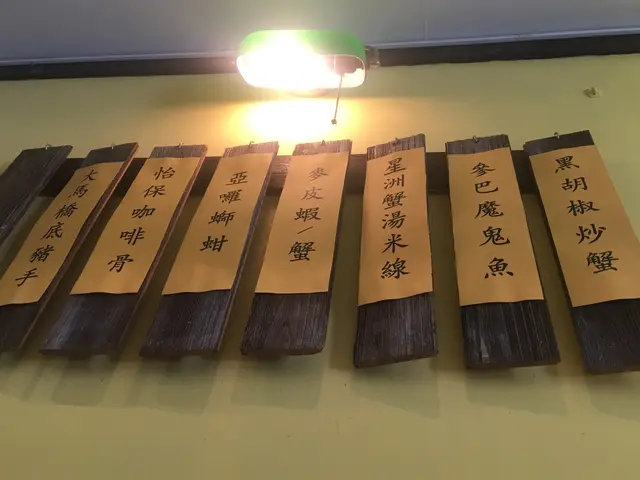 黑胡椒炒蟹
參巴魔鬼魚
星洲蟹湯米線
麥皮蝦/蟹
亞囉螄蚶
怡保咖啡骨
大馬橋底豬手